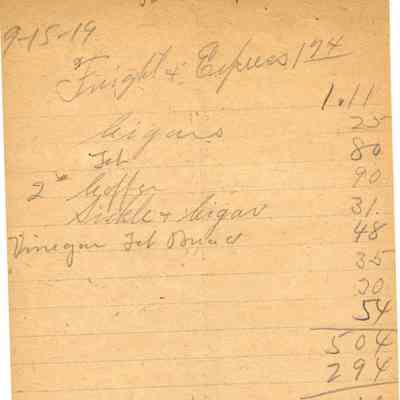 9-15-19
Freight & Express 1 74
1.11
Cigars 25
Tob 80
2 Coffee 90
Sickle & Cigar 31.
Vinegar Tob Bread 48
35
30
54
504
294